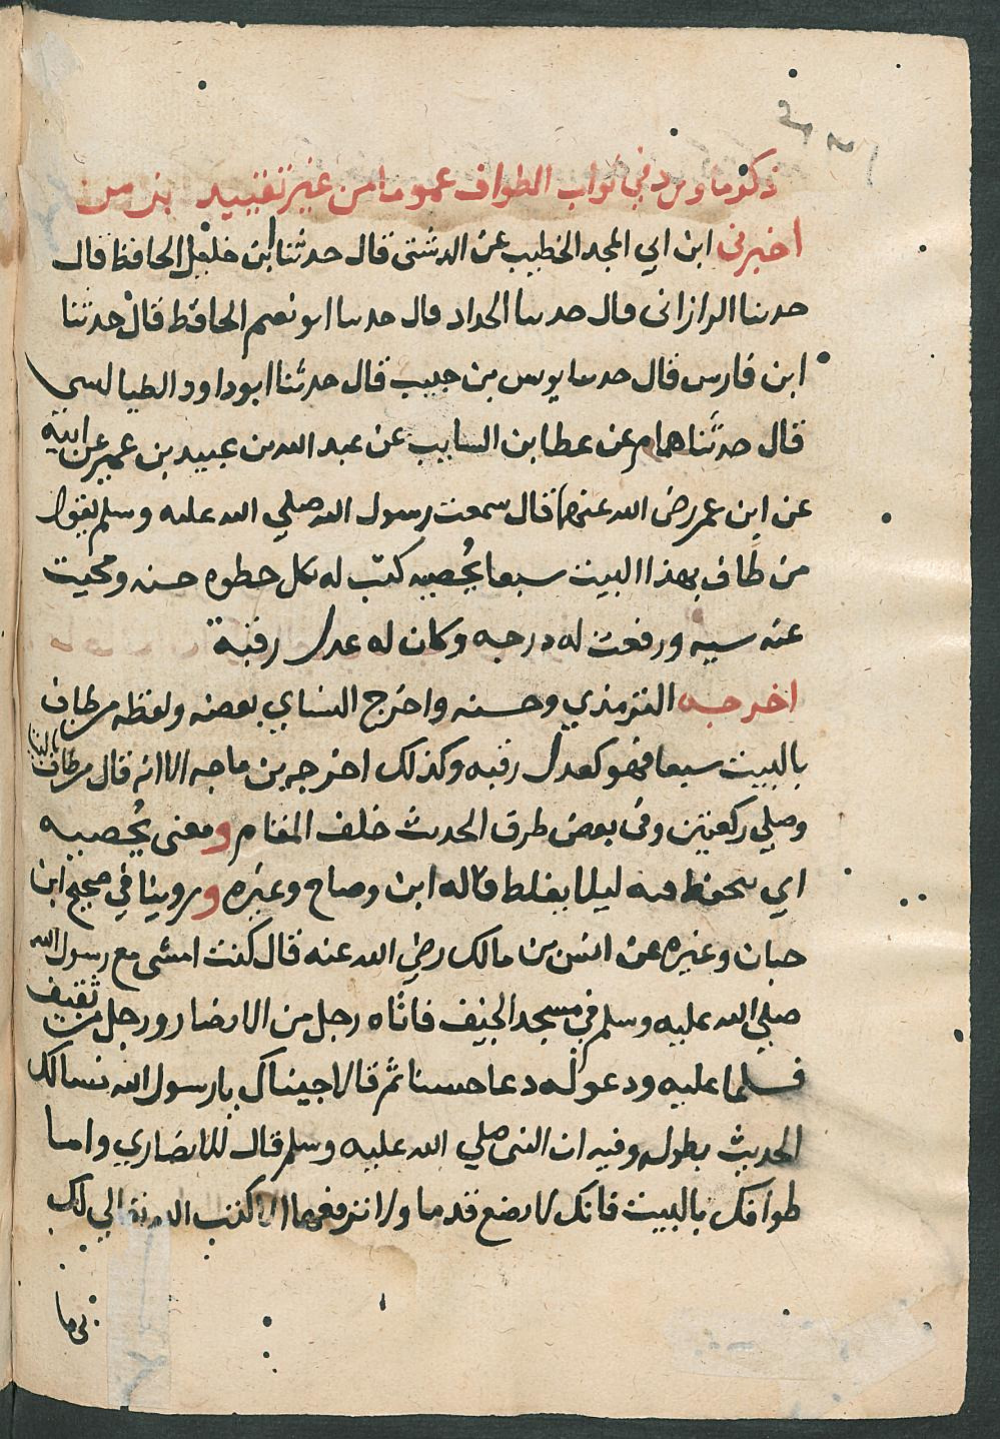 ذكر ما ورد في ثواب الطواف عموما من غير تقييد بزمن
اخبرني ابن ابي المجد الخطيب عن الدشتى قال حدثنا ابن خليل الحافظ قال
حدثنا الرازانى قال حدثنا الحداد قال حدثنا ابو نعيم الحافظ قال حدثنا
ابن فارس قال حدثنا يونس بن حبيب قال حدثنا ابو داود الطيالسي
قال حدثنا همام عن عطا بن السايب عن عبد الله بن عبيد بن عمير عن ابيه
عن ابن عمر رضى الله عنهما قال سمعت رسول الله صلي الله عليه وسلم يقول
من طاف بهذا البيت سبعا يُحصيه كتب له بكل خطوه حسنه ومحيت
عنه سيه ورفعت له درجه وكان له عدل رقبة
اخرجه الترمذي وحسنه واخرج النساي بعضه ولفظه من طاف
بالبيت سبعا فهو كعدل رقبه وكذلك اخرجه بن ماجه الا انه قال من طاف بالبيت
وصلي ركعتين وفى بعض طرق الحديث خلف المقام ومعنى يُحصيه
اي يتحفظ فيه ليلا يغلط قاله ابن وضاح وغيره وروينا في صحيح ابن
حبان وغيره عن انس بن مالك رضي الله عنه قال كنت امشى مع رسول الله
صلي الله عليه وسلم في مسجد الخيف فاتاه رجل من الانصار ورجل من ثقيف
فسلما عليه ودعوا له دعا حسنا ثم قالا جيناك يا رسول الله نسالك
الحديث بطوله وفيه ان النبى صلي الله عليه وسلم قال للانصاري واما
طوافك بالبيت فانك لا تضع قدما ولا ترفعها الا كتب الله تعالي لك
بها